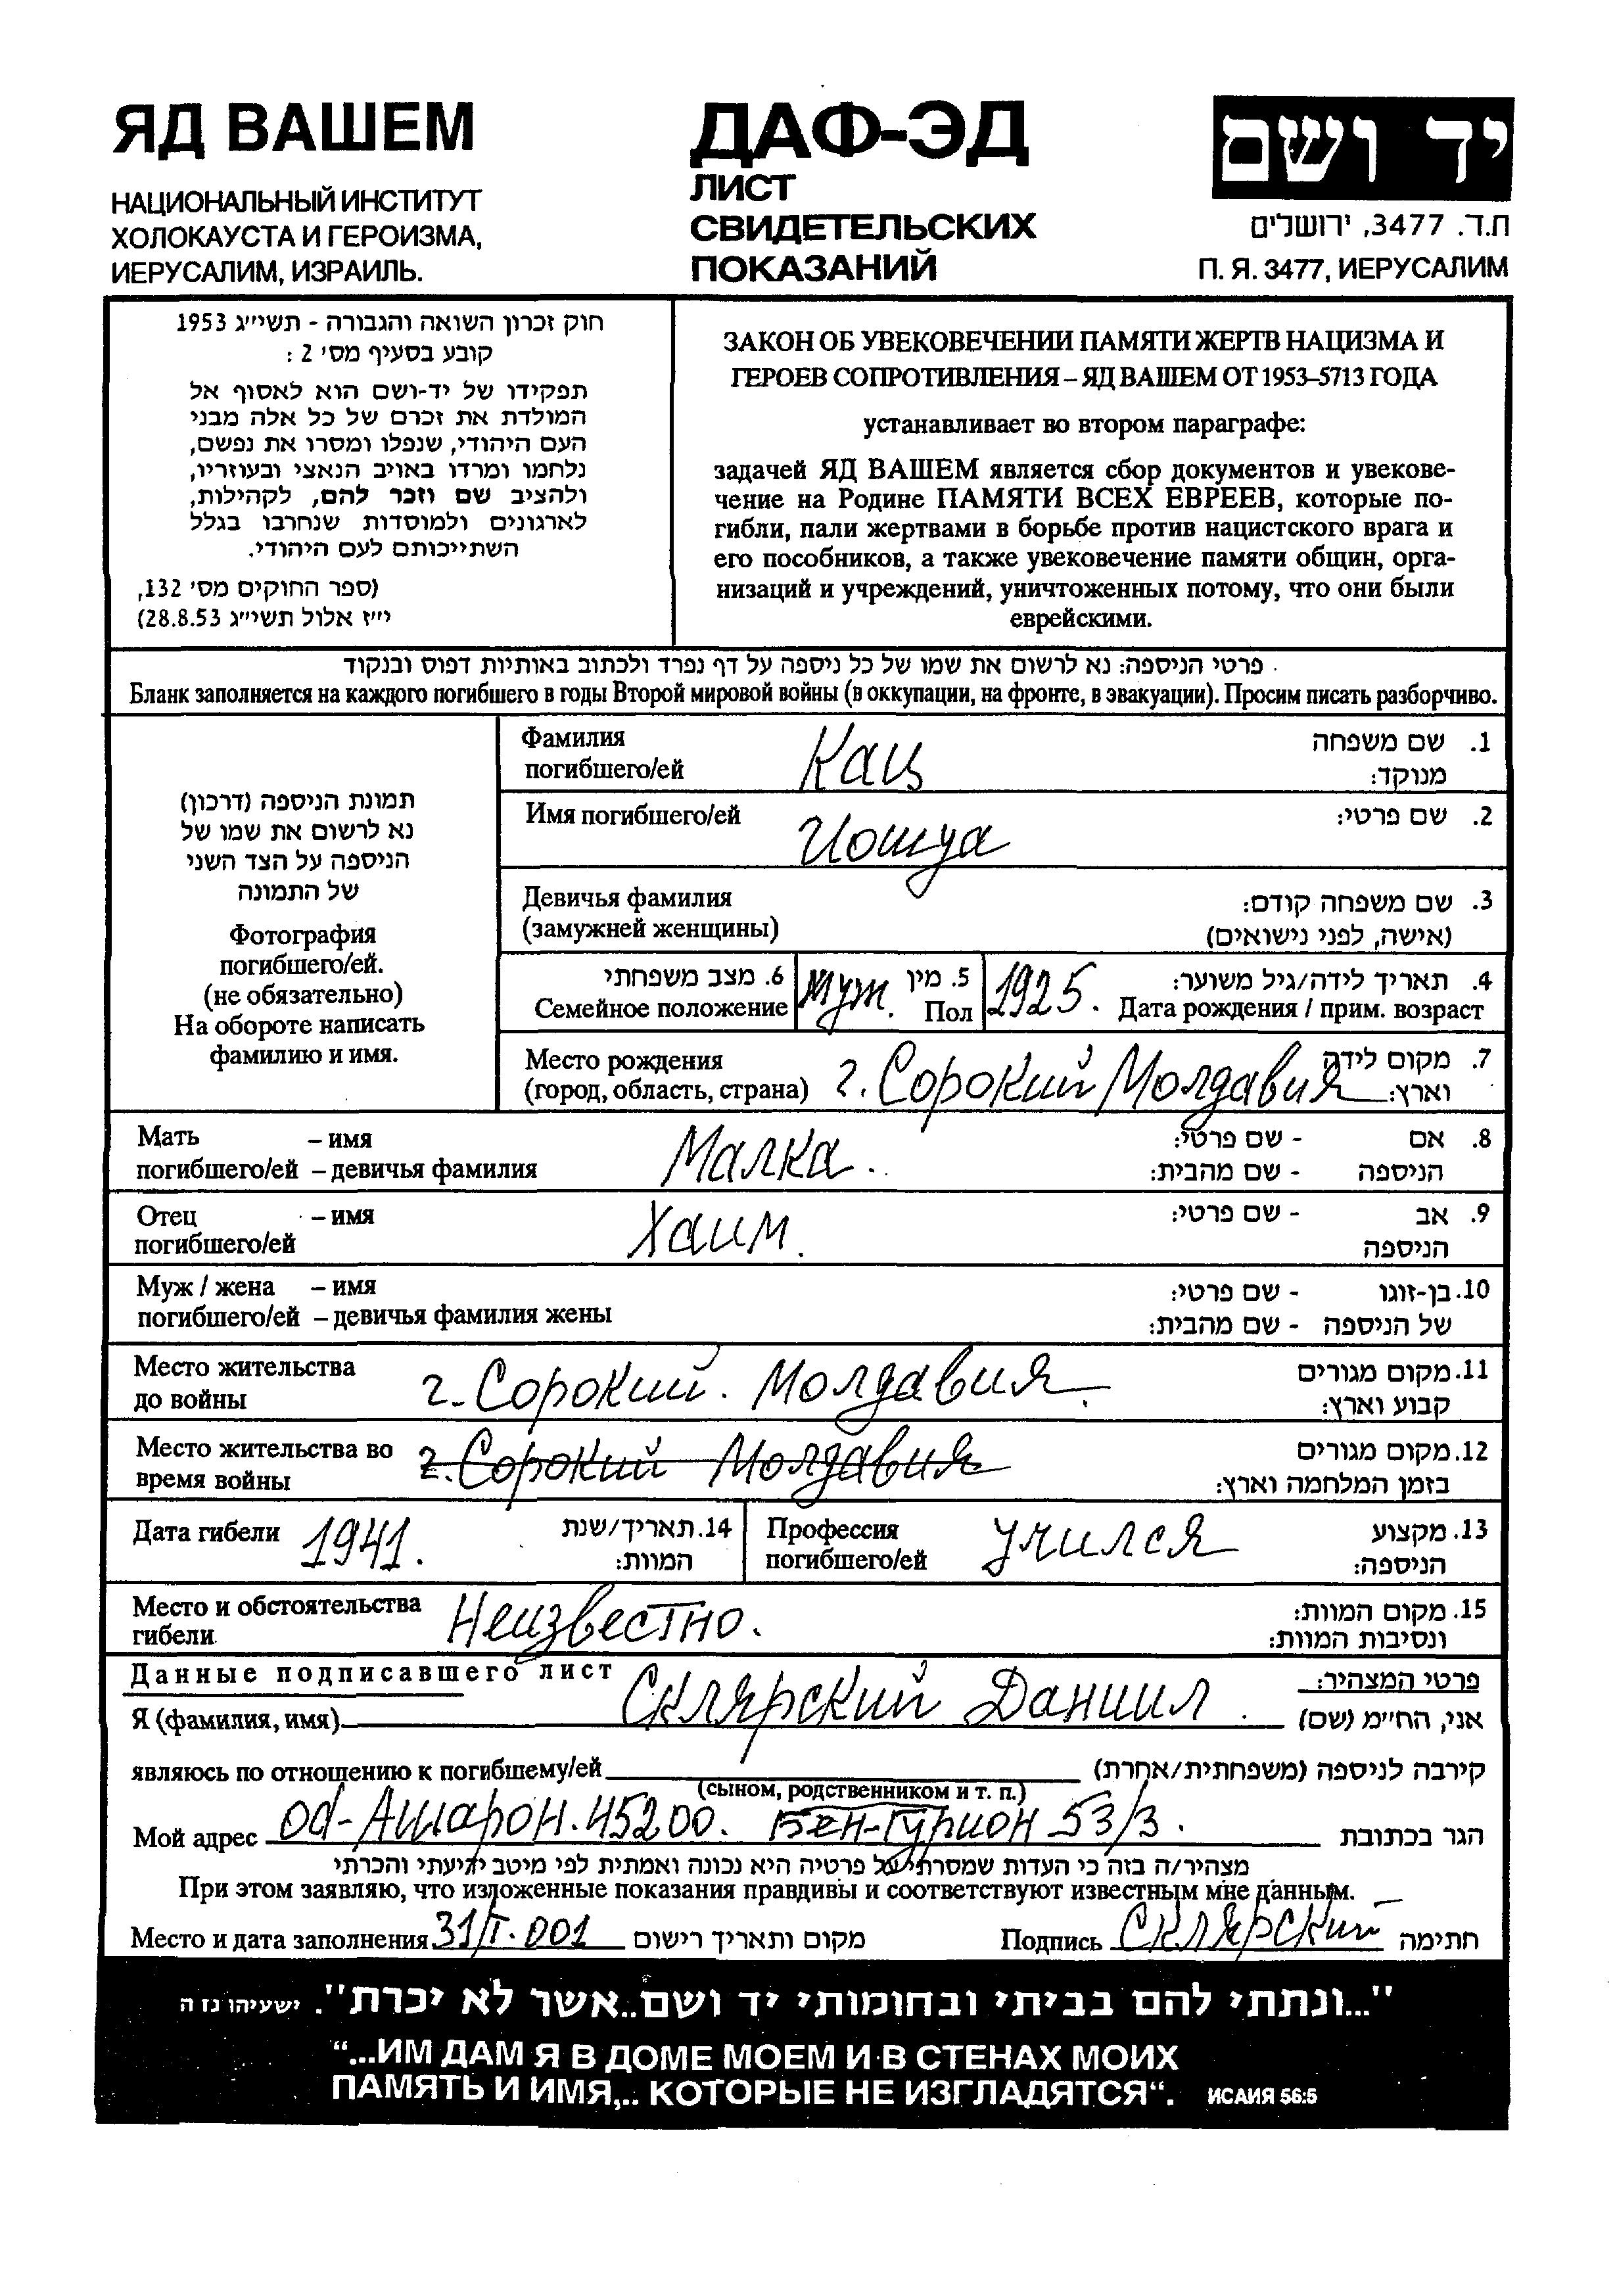 ЯД ВАШЕМ
НАЦИОНАЛЬНЫЙ ИНСТИТУТ
ХОЛОКАУСТА И ГЕРОИЗМА,
ИЕРУСАЛИМ, ИЗРАИЛЬ.
ДАФ-ЭД
ЛИСТ
СВИДЕТЕЛЬСКИХ
ПОКАЗАНИЙ
יד ושם
ת.ד. 3477, ירושלים
П. Я. 3477, ИЕРУСАЛИМ
חוק זכרון השואה והגבורה - תשי״ג 1953
קובע בסעיף מס׳ 2 :
תפקידו של יד-ושם הוא לאסוף אל
המולדת את זכרם של כל אלה מבני
העם היהודי, שנפלו ומסרו את נפשם,
נלחמו ומרדו באויב הנאצי ובעוזריו,
ולהציב שם וזכר להם, לקהילות,
לארגונים ולמוסדות שנחרבו בגלל
השתייכותם לעם היהודי.
(ספר החוקים מס׳ 132,
י״ז אלול תשי״ג 28.8.53)
ЗАКОН ОБ УВЕКОВЕЧЕНИИ ПАМЯТИ ЖЕРТВ НАЦИЗМА И
ГЕРОЕВ СОПРОТИВЛЕНИЯ – ЯД ВАШЕМ ОТ 1953–5713 ГОДА
устанавливает во втором параграфе:
задачей ЯД ВАШЕМ является сбор документов и увекове-
чение на Родине ПАМЯТИ ВСЕХ ЕВРЕЕВ, которые по-
гибли, пали жертвами в борьбе против нацистского врага и
его пособников, а также увековечение памяти общин, орга-
низаций и учреждений, уничтоженных потому, что они были
еврейскими.
פרטי הניספה: נא לרשום את שמו של כל ניספה על דף נפרד ולכתוב באותיות דפוס ובנקוד
Бланк заполняется на каждого погибшего в годы Второй мировой войны (в оккупации, на фронте, в эвакуации). Просим писать разборчиво.
תמונת הניספה (דרכון)
נא לרשום את שמו של
הניספה על הצד השני
של התמונה
Фотография
погибшего/ей.
(не обязательно)
На обороте написать
фамилию и имя.
Фамилия Кац 1. שם משפחה
погибшего/ей מנוקד:
Имя погибшего/ей Иошуа 2. שם פרטי:
Девичья фамилия 3. שם משפחה קודם:
(замужней женщины) (אישה, לפני נישואים)
6. מצב משפחתי муж. 5. מין 1925. 4. תאריך לידה/גיל משוער:
Семейное положение Пол Дата рождения / прим. возраст
Место рождения г. Сорокий Молдавия 7. מקום לידה
(город, область, страна) וארץ:
Мать – имя Малка. 8. אם - שם פרטי:
погибшего/ей – девичья фамилия הניספה - שם מהבית:
Отец – имя Хаим. 9. אב - שם פרטי:
погибшего/ей הניספה
Муж / жена – имя 10. בן-זוגו - שם פרטי:
погибшего/ей – девичья фамилия жены של הניספה - שם מהבית:
Место жительства г. Сорокий. Молдавия. 11. מקום מגורים
до войны קבוע וארץ:
Место жительства во г. Сорокий Молдавия 12. מקום מגורים
время войны בזמן המלחמה וארץ:
Дата гибели 1941. 14. תאריך/שנת Профессия учился 13. מקצוע
המוות: погибшего/ей הניספה:
Место и обстоятельства Неизвестно. 15. מקום המוות:
гибели ונסיבות המוות:
Данные подписавшего лист פרטי המצהיר:
Я (фамилия, имя) Склярский Даниил. אני, הח״מ (שם)
являюсь по отношению к погибшему/ей קירבה לניספה (משפחתית/אחרת)
(сыном, родственником и т. п.)
Мой адрес od-Ашарон. 45200. Бен-Гурион 53/3. הגר בכתובת
מצהיר/ה בזה כי העדות שמסרתי על פרטיה היא נכונה ואמתית לפי מיטב ידיעתי והכרתי
При этом заявляю, что изложенные показания правдивы и соответствуют известным мне данным.
Место и дата заполнения 31/I. 001 מקום ותאריך רישום Подпись Склярский חתימה
"...ונתתי להם בביתי ובחומותי יד ושם..אשר לא יכרת". ישעיהו נז ה
“...ИМ ДАМ Я В ДОМЕ МОЕМ И В СТЕНАХ МОИХ
ПАМЯТЬ И ИМЯ,.. КОТОРЫЕ НЕ ИЗГЛАДЯТСЯ“. ИСАИЯ 56:5